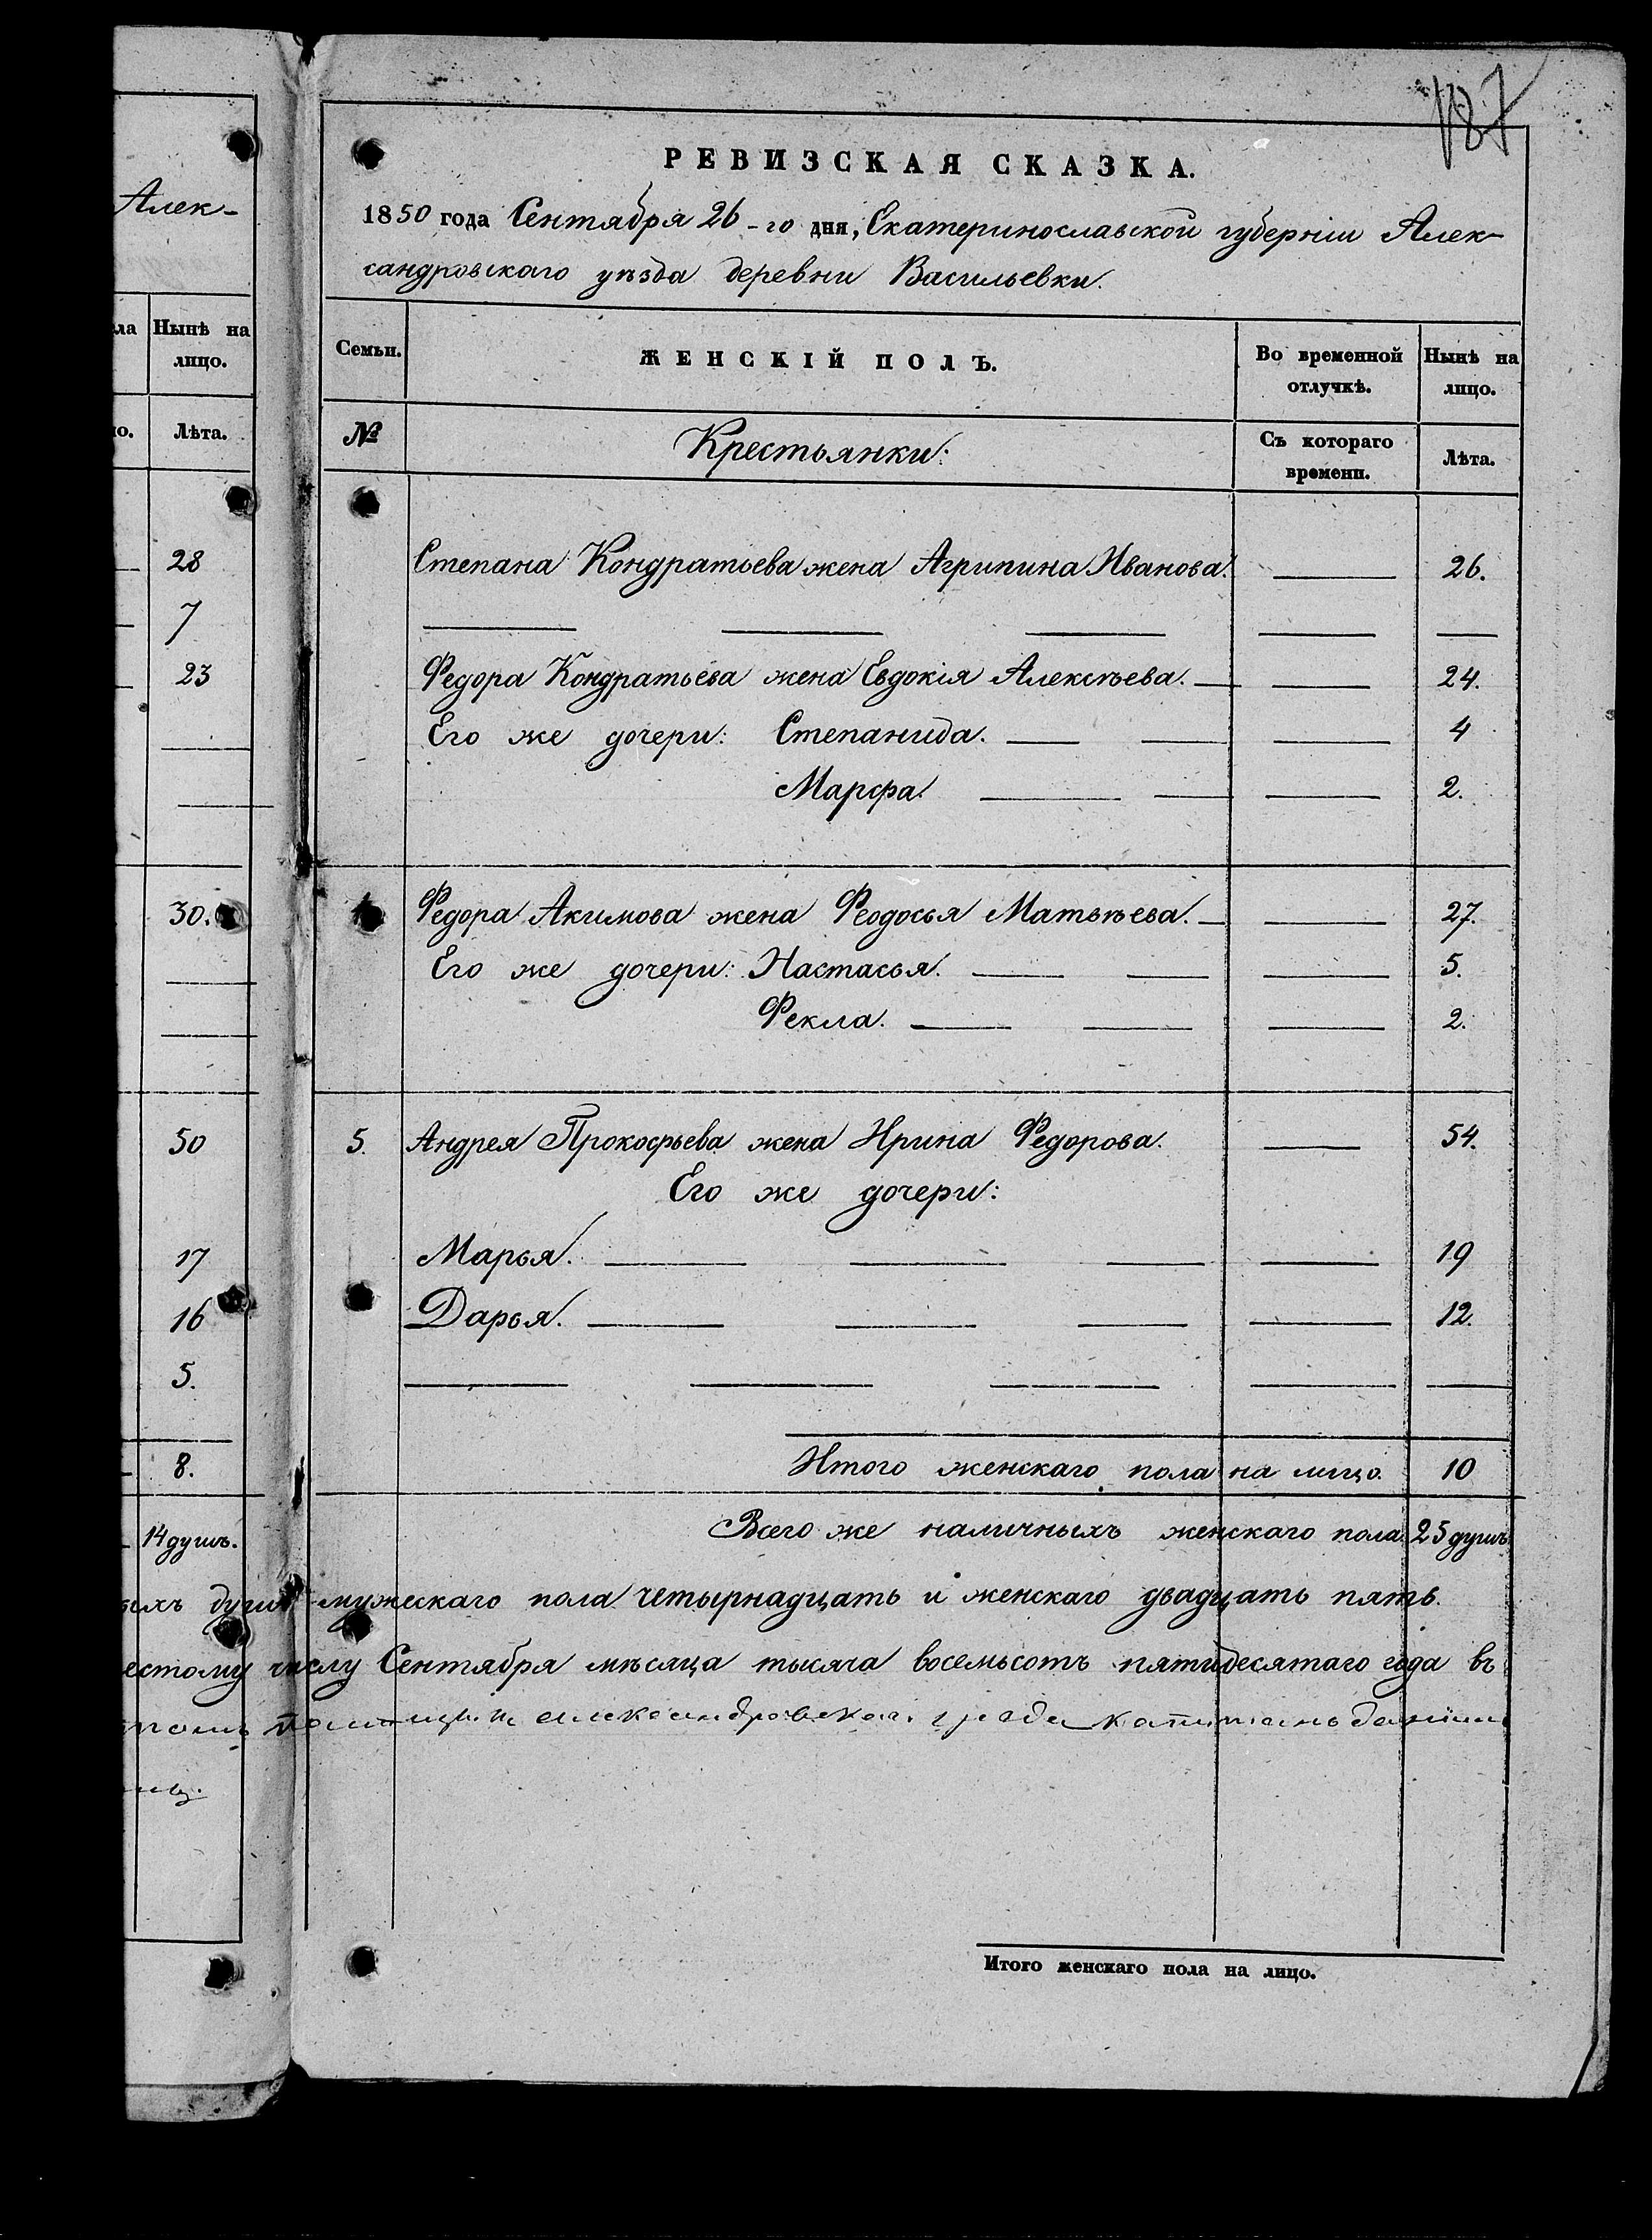 187
Алек-
ла
Нынѣ на
лицо.
Лѣта.
28
7
23
30.
50
17
16
5.
8.
14 душъ.
РЕВИЗСКАЯ СКАЗКА.
1850 года Сентября 26-го дня, Екатеринославской губерніи Алек-
сандровскаго уѣзда деревни Васильевки.
Семьи.
ЖЕНСКІЙ ПОЛЪ.
Во временной
отлучкѣ.
Нынѣ на
лицо.
№
Крестьянки:
Съ котораго
времени.
Лѣта.
Степана Кондратьева жена Агрипина Иванова. 26.
Федора Кондратьева жена Евдокія Алексѣева. 24.
Его же дочери: Степанида. 4
Марфа. 2.
Федора Акимова жена Феодосья Матвѣева. 27.
Его же дочери: Настасья. 5.
Фекла. 2.
5. Андрея Прокофьева жена Ирина Федорова. 54.
Его же дочери:
Марья. 19
Дарья. 12.
Итого женскаго пола на лицо. 10
Всего же наличныхъ женскаго пола 25 душъ
ыхъ душъ мужескаго пола четырнадцать и женскаго двадцать пять.
естому числу Сентября мѣсяца тысяча восемьсотъ пятидесятаго года въ
Итого женскаго пола на лицо.